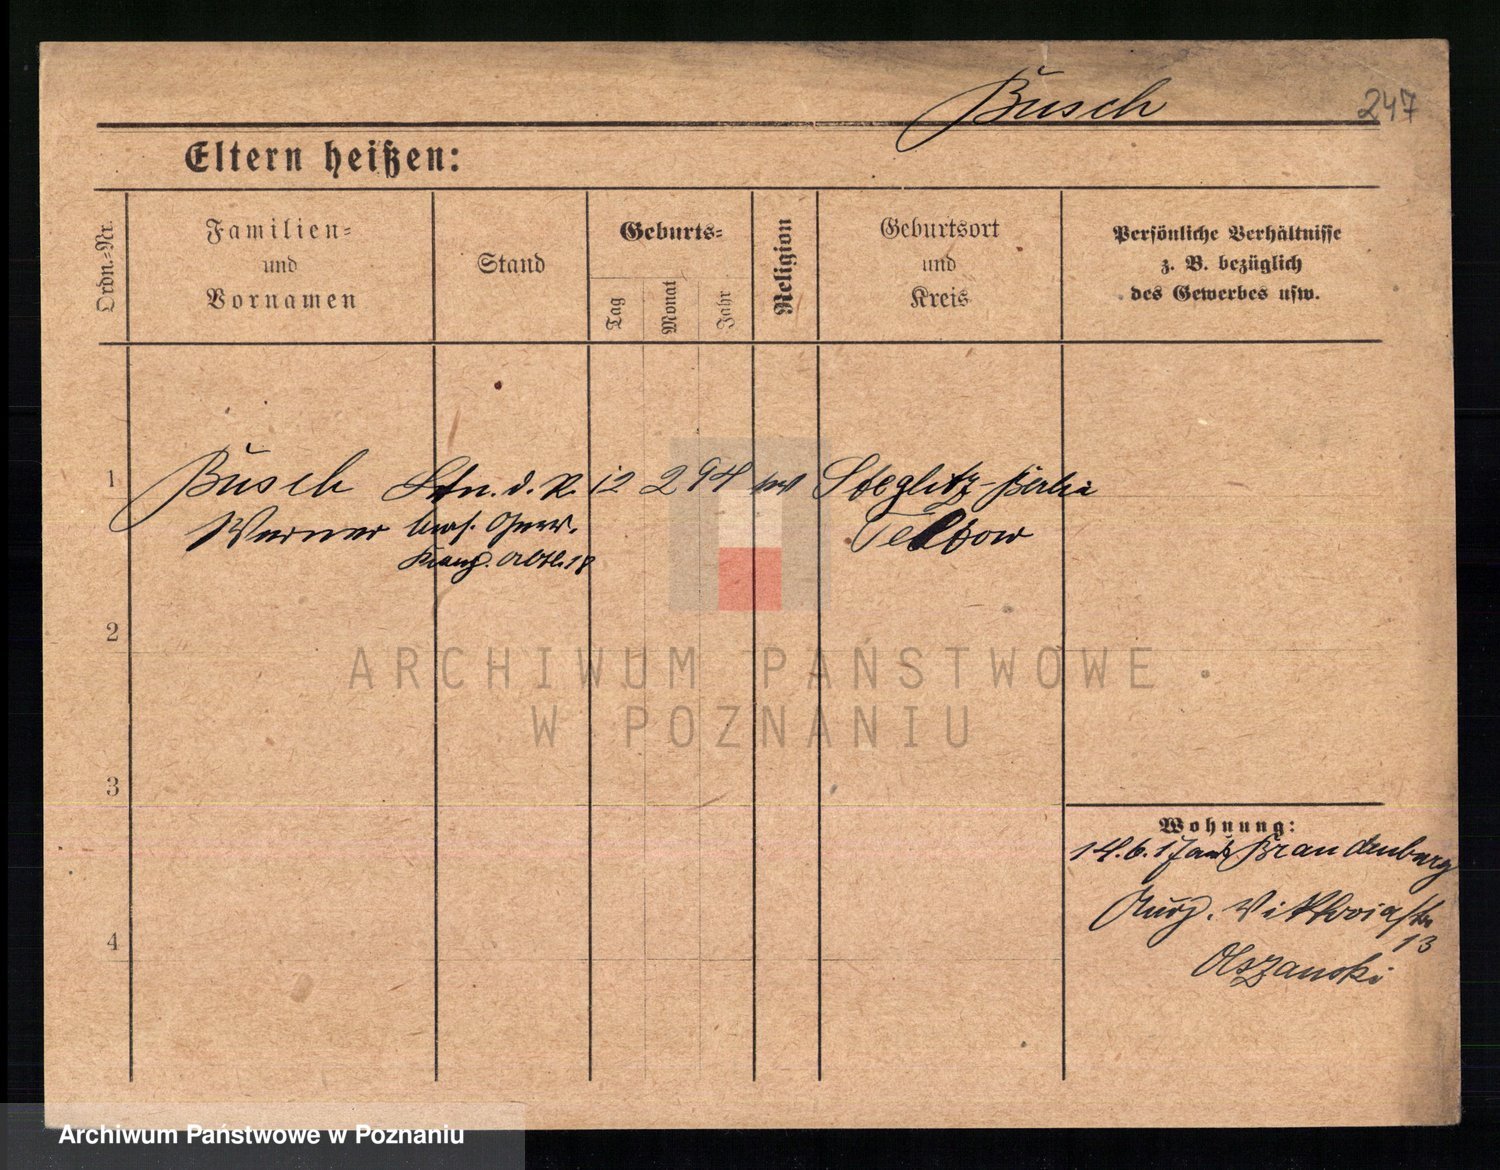 Busch
247
Eltern heißen:
Ordn.-Nr.
Familien-
und
Vornamen
Stand
Geburts-
Tag
Monat
Jahr
Religion
Geburtsort
und
Kreis
Persönliche Verhältnisse
z. B. bezüglich
des Gewerbes usw.
1
Busch Ltn. d. R. 12 2 94 ev Steglitz-Berlin
Werner Teltow
Abtl. 18
2
ARCHIWUM PAŃSTWOWE
W POZNANIU
3
Wohnung:
14.6.17 aus Brandenburg
Viktoriastr
13
Olszanski
4
Archiwum Państwowe w Poznaniu